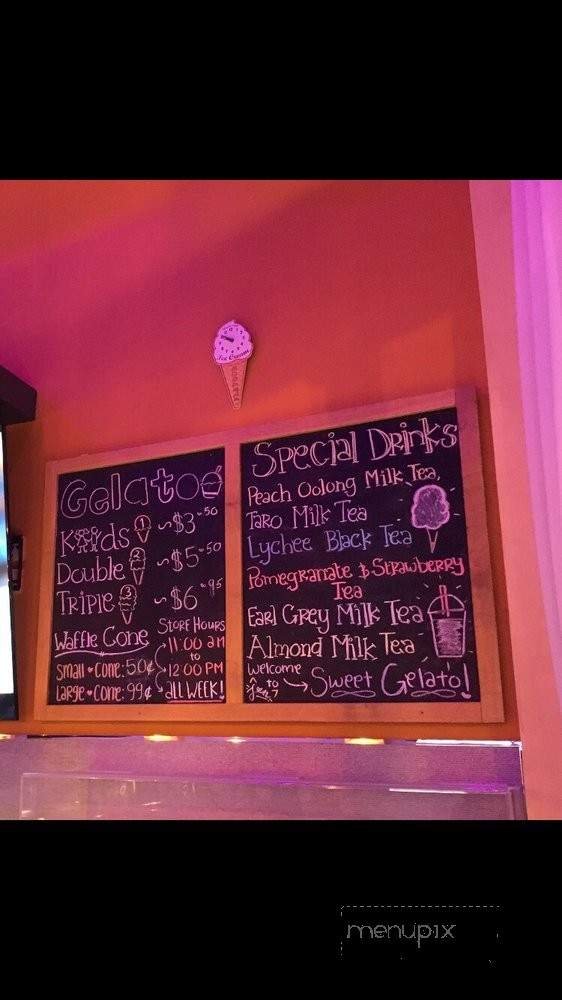 Ice Cream
Gelato
Kids 1 ~$3.50
Double 2 ~$5.50
Triple 3 ~$6.95
Waffle Cone
Small ♥ Cone: 50¢
Large ♥ Cone: 99¢
Store Hours
11:00 am
to
12:00 PM
ALL WEEK!
Special Drinks
Peach Oolong Milk Tea,
Taro Milk Tea
Lychee Black Tea
Pomegranate & Strawberry
Tea
Earl Grey Milk Tea
Almond Milk Tea
Welcome
to
Sweet Gelato!
menupix